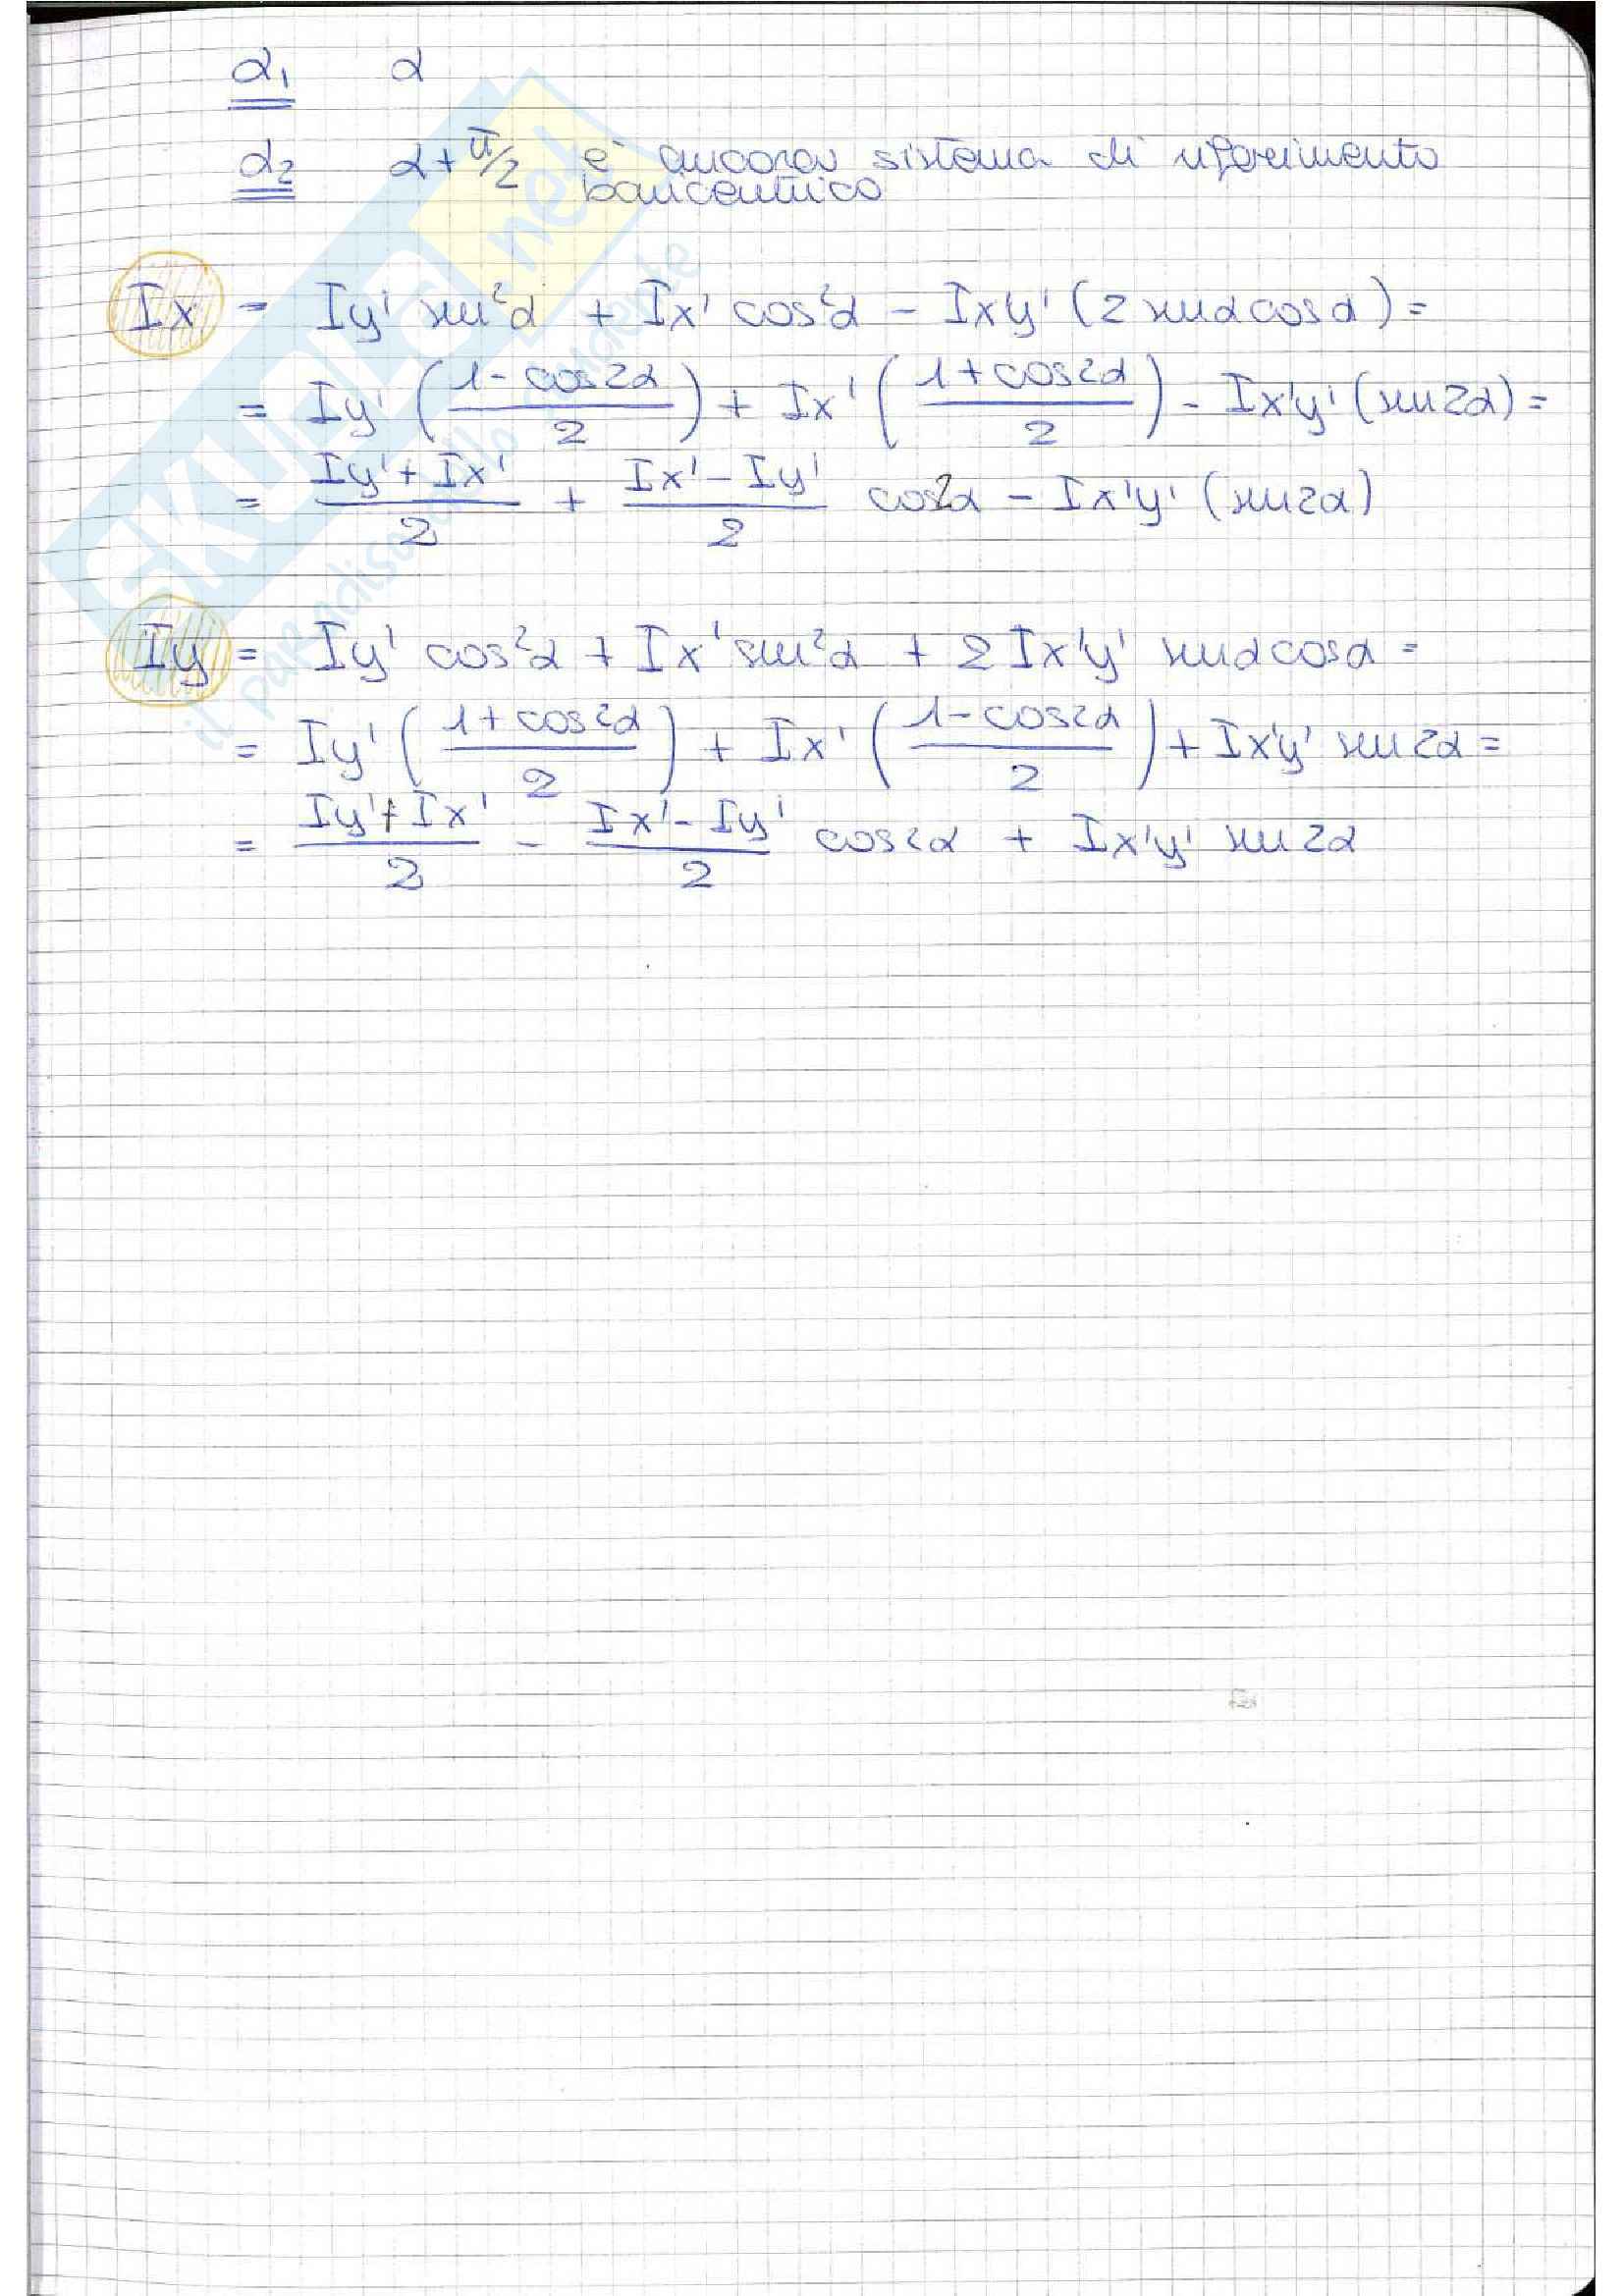 α₁ α
α₂ α+π/2 e' ancora sistema di riferimento
baricentrico
Ix = Iy' sen²α + Ix' cos²α - Ixy' (2 senα cosα) =
= Iy' (1-cos2α / 2) + Ix' (1+cos2α / 2) - Ix'y' (sen2α) =
= Iy'+Ix' / 2 + Ix'-Iy' / 2 cos2α - Ix'y' (sen2α)
Iy = Iy' cos²α + Ix' sen²α + 2 Ix'y' senα cosα =
= Iy' (1+cos2α / 2) + Ix' (1-cos2α / 2) + Ix'y' sen2α =
= Iy'+Ix' / 2 - Ix'-Iy' / 2 cos2α + Ix'y' sen2α
SKUOLA.net
il paradiso dello studente